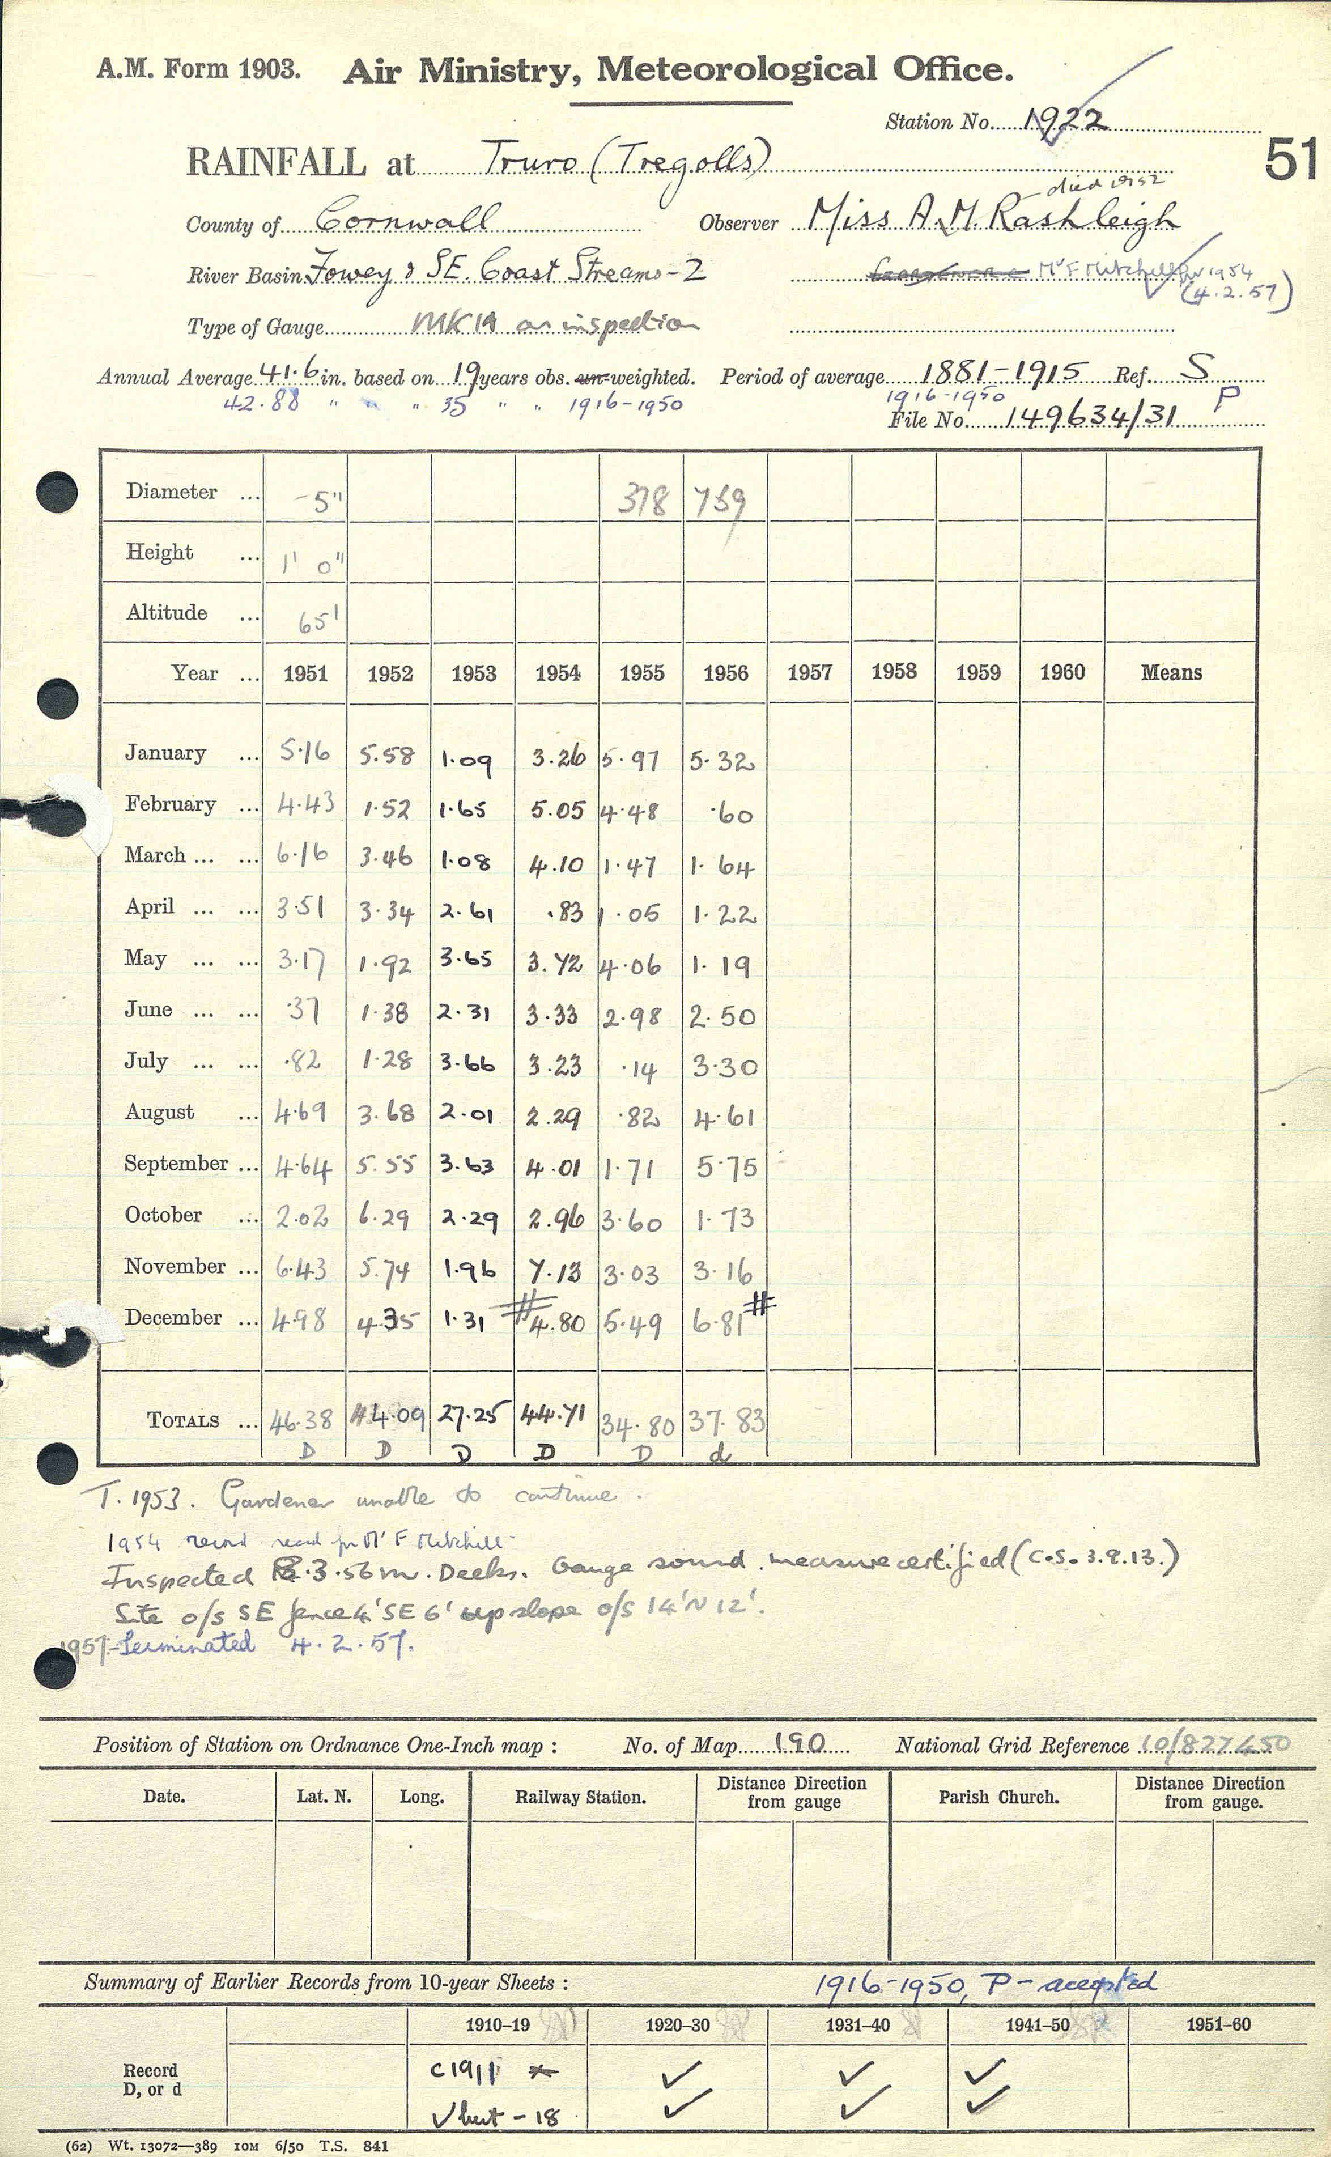 A.M. Form 1903. Air Ministry, Meteorological Office.
Station No. 1922
51
RAINFALL at Truro (Tregolls)
died 1952
County of Cornwall Observer Miss A.M. Rashleigh
River Basin Fowey & SE. Coast Streams-2 Mr F Mitchell 1954
(4.2.57)
Type of Gauge MK1A on inspection
Annual Average 41.6 in. based on 19 years obs. un-weighted. Period of average 1881-1915 Ref. S
42.88 " " " 35 " " 1916-1950 1916-1950 P
File No. 149634/31
Diameter ... 5" 378 759
Height ... 1' 0"
Altitude ... 65'
Year ... 1951 1952 1953 1954 1955 1956 1957 1958 1959 1960 Means
January ... 5.16 5.58 1.09 3.26 5.97 5.32
February ... 4.43 1.52 1.65 5.05 4.48 .60
March ... ... 6.16 3.46 1.08 4.10 1.47 1.64
April ... ... 3.51 3.34 2.61 .83 1.05 1.22
May ... ... 3.17 1.92 3.65 3.72 4.06 1.19
June ... ... .37 1.38 2.31 3.33 2.98 2.50
July ... ... .82 1.28 3.66 3.23 .14 3.30
August ... 4.69 3.68 2.01 2.29 .82 4.61
September ... 4.64 5.55 3.63 4.01 1.71 5.75
October ... 2.02 6.29 2.29 2.96 3.60 1.73
November ... 6.43 5.74 1.96 7.13 3.03 3.16
December ... 4.98 4.35 1.31 # 4.80 5.49 6.81 #
TOTALS ... 46.38 44.09 27.25 44.71 34.80 37.83
D D D D D d
T. 1953. Gardener unable to continue.
1954 record recd from Mr F Mitchell
Inspected 8.3.56 Gauge sound. measure certified (C.S. 3.9.13.)
Site o/s SE fence 4' SE 6' up slope o/s 14' N 12'.
1957 - Terminated 4.2.57.
Position of Station on Ordnance One-Inch map : No. of Map 190 National Grid Reference 10/827450
Date. Lat. N. Long. Railway Station. Distance Direction from gauge Parish Church. Distance Direction from gauge.
Summary of Earlier Records from 10-year Sheets : 1916-1950, P - accepted
1910-19 1920-30 1931-40 1941-50 1951-60
Record c1911 * ✓ ✓ ✓
D, or d ✓ but - 18 ✓ ✓ ✓
(62) Wt. 13072—389 10M 6/50 T.S. 841